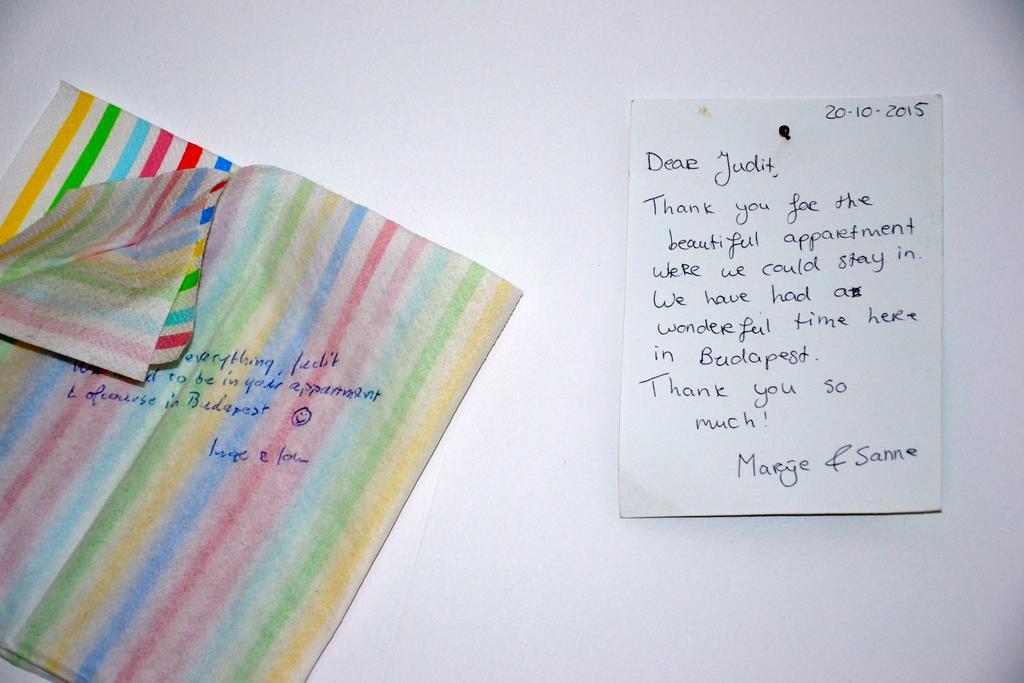 everything, Judit
to be in your appartment
& ofcourse in Budapest ☺
Inge &
20-10-2015
Dear Judit,
Thank you for the
beautiful appartment
were we could stay in.
We have had a
wonderful time here
in Budapest.
Thank you so
much!
Marije & Sanne